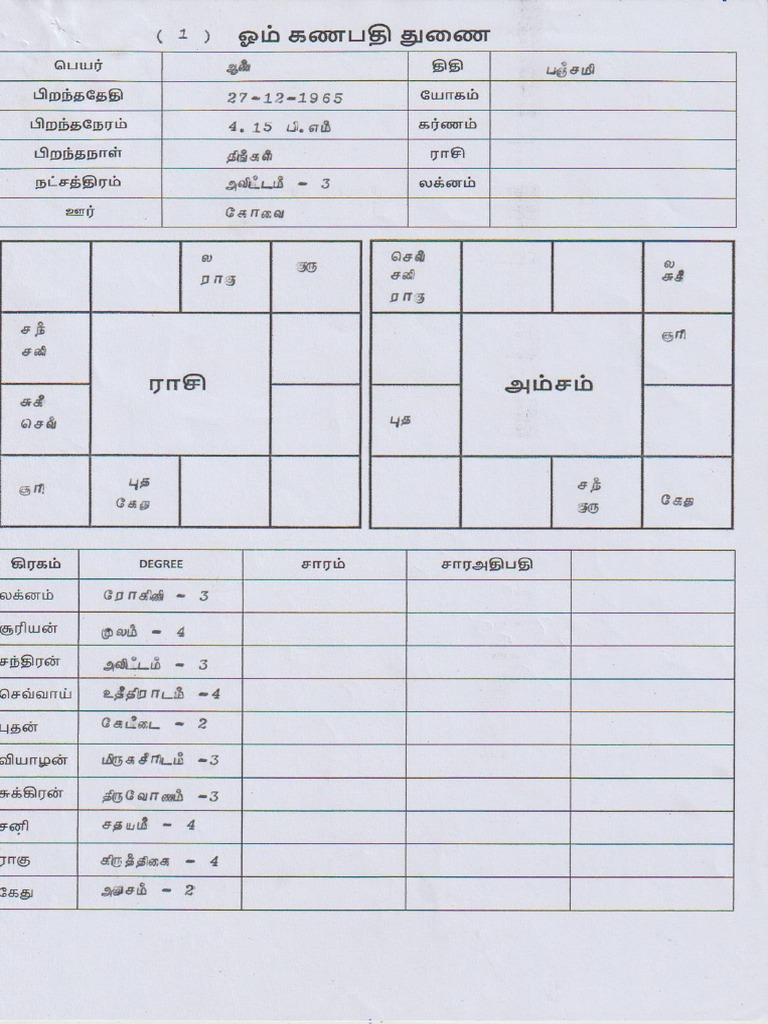 ( 1 ) ஓம் கணபதி துணை
பெயர் ஆண் திதி பஞ்சமி
பிறந்ததேதி 27-12-1965 யோகம்
பிறந்தநேரம் 4.15 பி.எம் கர்ணம்
பிறந்தநாள் திங்கள் ராசி
நட்சத்திரம் அவிட்டம் - 3 லக்னம்
ஊர் கோவை
ல
ராகு
குரு
சந்
சனி
ராசி
சுக்
செவ்
ஞாி
புத
கேது
செவ்
சனி
ராகு
ல
சுக்
ஞாி
அம்சம்
புத
சந்
குரு
கேது
கிரகம் DEGREE சாரம் சாரஅதிபதி
லக்னம் ரோகிணி - 3
சூரியன் மூலம் - 4
சந்திரன் அவிட்டம் - 3
செவ்வாய் உத்திராடம் -4
புதன் கேட்டை - 2
வியாழன் மிருகசீரிடம் -3
சுக்கிரன் திருவோணம் -3
சனி சதயம் - 4
ராகு கிருத்திகை - 4
கேது அனுசம் - 2